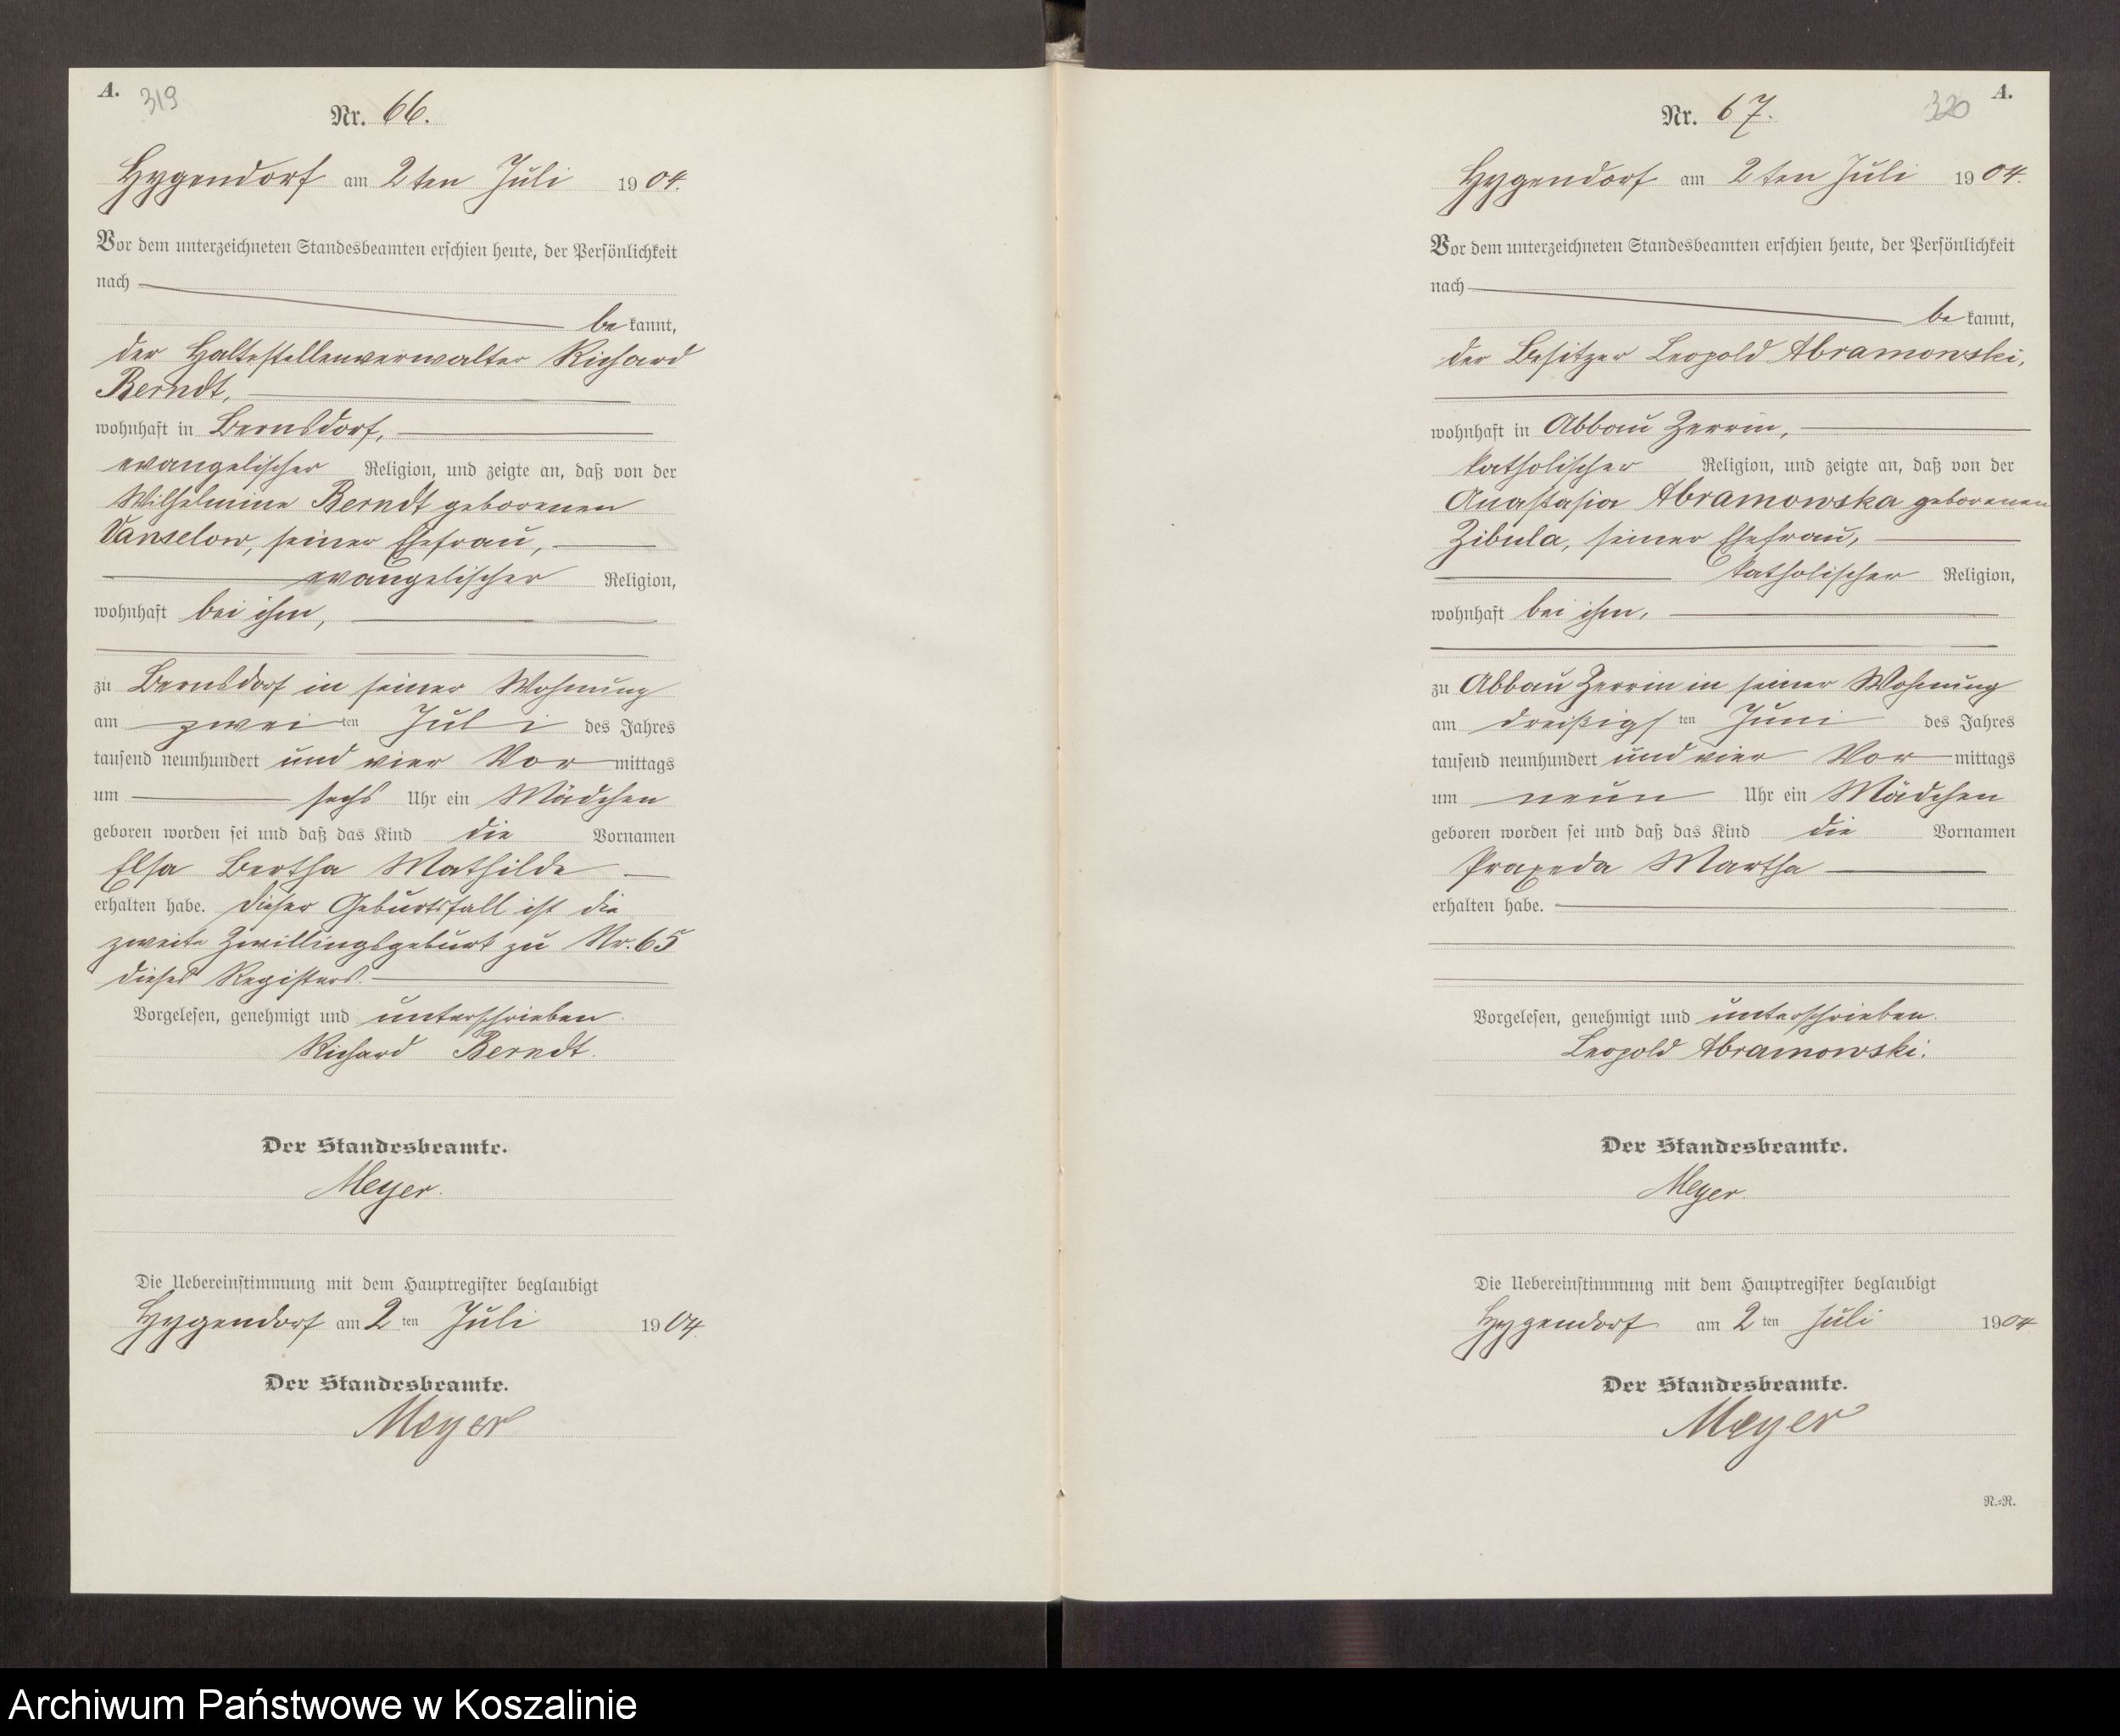 A. 319
Nr. 66.
Hygendorf am 2ten Juli 1904.
Vor dem unterzeichneten Standesbeamten erschien heute, der Persönlichkeit
nach
bekannt,
der Haltestellenverwalter Richard
Berndt,
wohnhaft in Bernsdorf,
evangelischer Religion, und zeigte an, daß von der
Wilhelmine Berndt geborenen
Vanselow, seiner Ehefrau,
evangelischer Religion,
wohnhaft bei ihm,
zu Bernsdorf in seiner Wohnung
am zweiten Juli des Jahres
tausend neunhundert und vier Vormittags
um sechs Uhr ein Mädchen
geboren worden sei und daß das Kind die Vornamen
Elsa Bertha Mathilde
erhalten habe. Dieser Geburtsfall ist die
zweite Zwillingsgeburt zu Nr. 65
dieses Registers.
Vorgelesen, genehmigt und unterschrieben.
Richard Berndt.
Der Standesbeamte.
Meyer.
Die Uebereinstimmung mit dem Hauptregister beglaubigt
Hygendorf am 2ten Juli 1904.
Der Standesbeamte.
Meyer
320 A.
Nr. 67.
Hygendorf am 2ten Juli 1904.
Vor dem unterzeichneten Standesbeamten erschien heute, der Persönlichkeit
nach
bekannt,
der Besitzer Leopold Abramowski,
wohnhaft in Abbau Zerrin,
katholischer Religion, und zeigte an, daß von der
Anastasia Abramowska geborenen
Zibula, seiner Ehefrau,
katholischer Religion,
wohnhaft bei ihm,
zu Abbau Zerrin in seiner Wohnung
am dreißigsten Juni des Jahres
tausend neunhundert und vier Vormittags
um neun Uhr ein Mädchen
geboren worden sei und daß das Kind die Vornamen
Praxeda Martha
erhalten habe.
Vorgelesen, genehmigt und unterschrieben.
Leopold Abramowski.
Der Standesbeamte.
Meyer
Die Uebereinstimmung mit dem Hauptregister beglaubigt
Hygendorf am 2ten Juli 1904
Der Standesbeamte.
Meyer
R.=R.
Archiwum Państwowe w Koszalinie